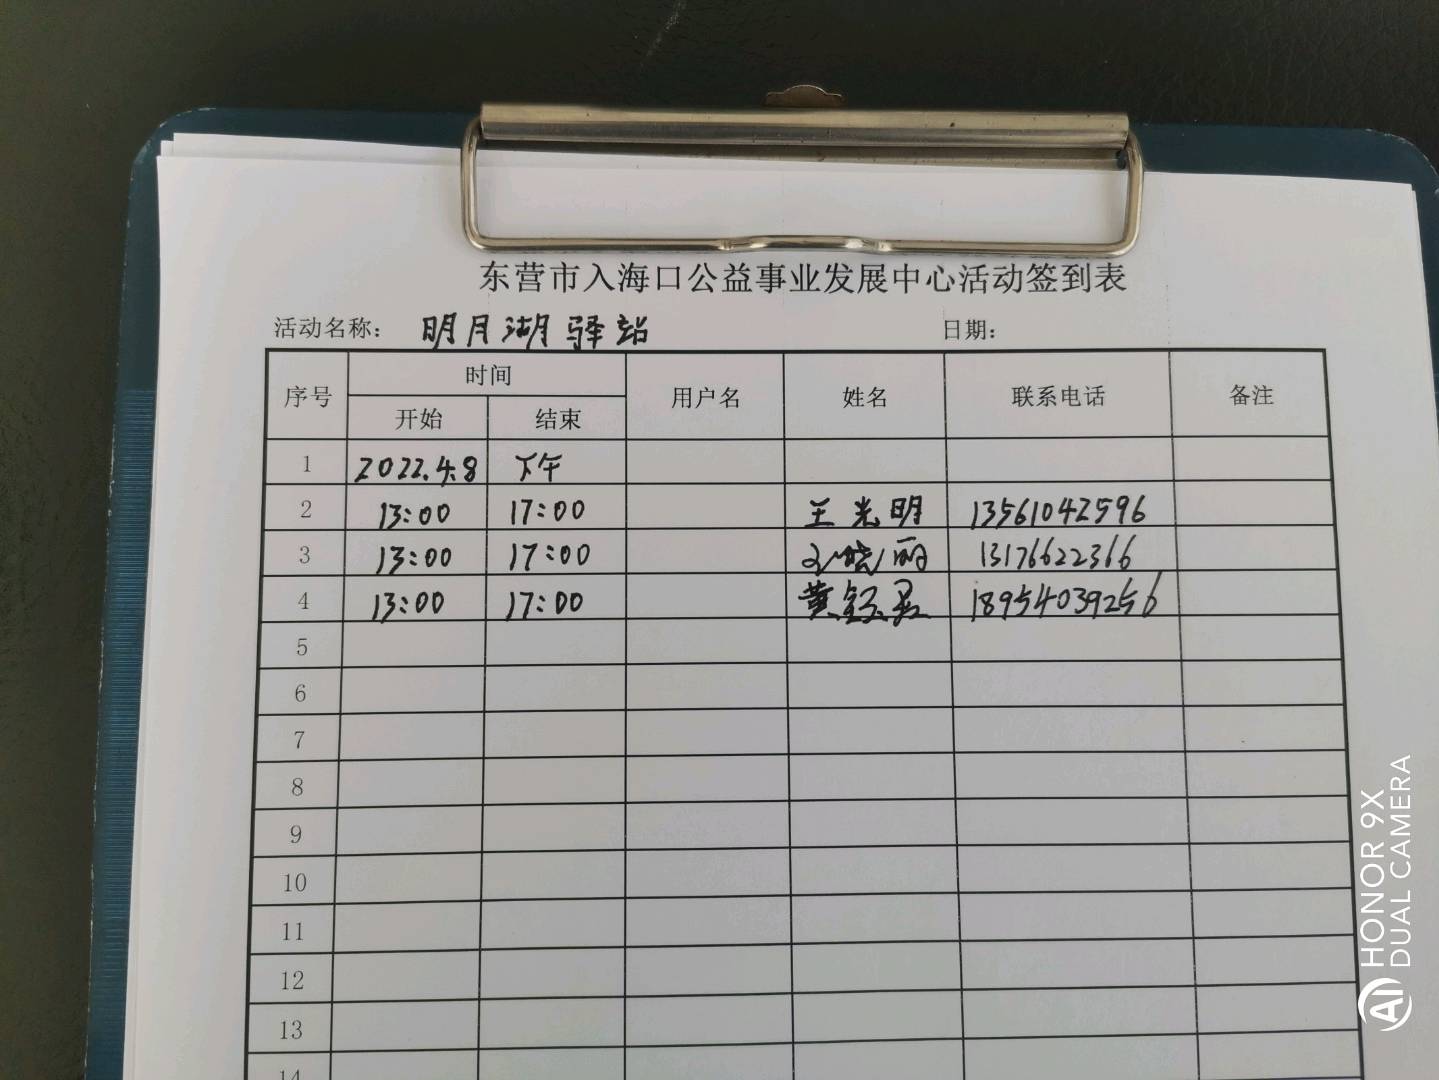 东营市入海口公益事业发展中心活动签到表
活动名称： 明月湖驿站 日期：
序号 时间 用户名 姓名 联系电话 备注
开始 结束
1 2022.4.8 下午
2 13:00 17:00 王光明 13561042596
3 13:00 17:00 晓丽 13176622366
4 13:00 17:00 黄 18954039256
5
6
7
8
9
10
11
12
13
14
HONOR 9X
DUAL CAMERA
AI